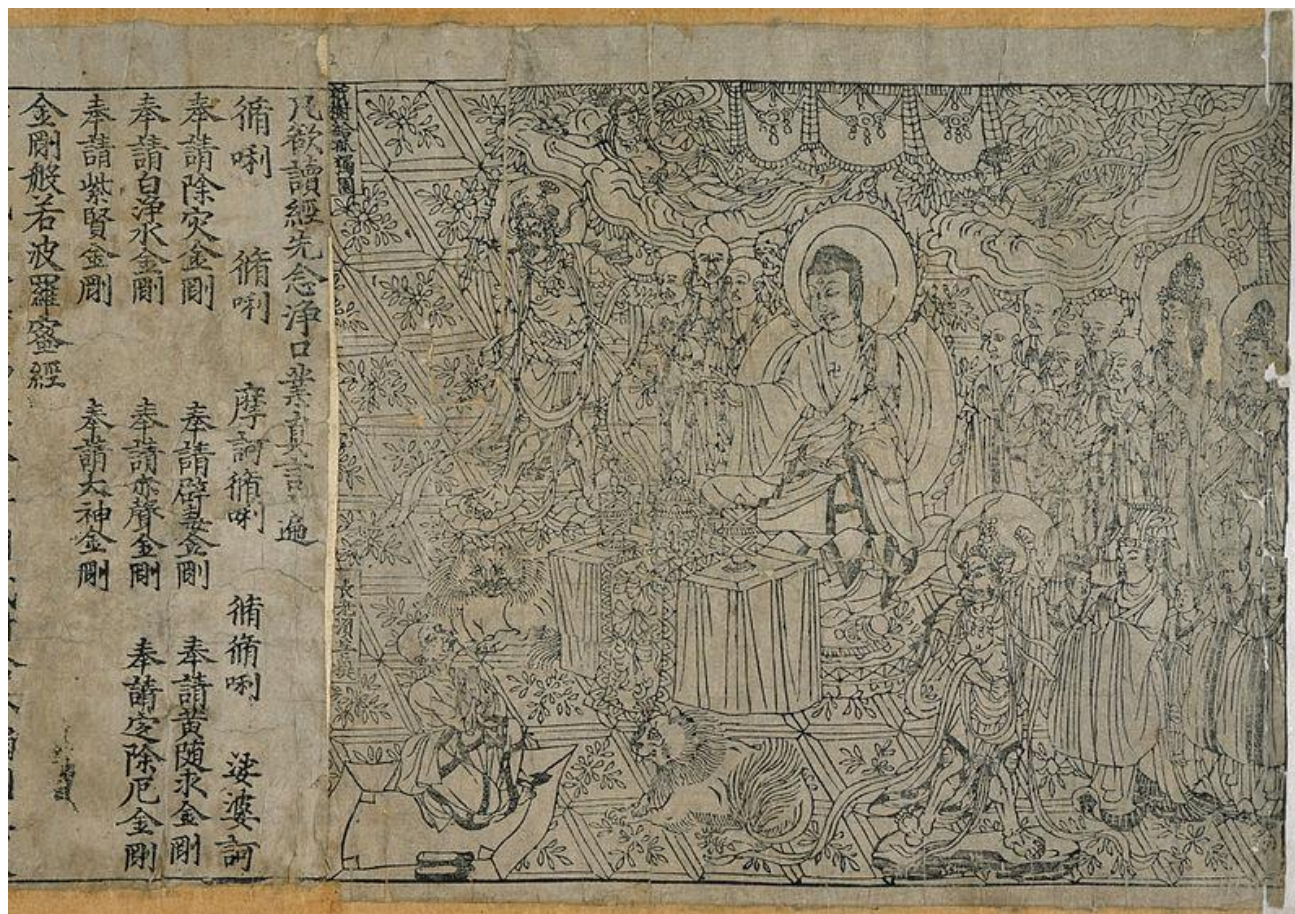 祇樹給孤獨園
長老須菩提
凡欲讀經先念浄口業真言遍
脩唎 脩唎 摩訶脩唎 脩脩唎 娑婆訶
奉請除灾金剛 奉請辟毒金剛 奉請黄随求金剛
奉請白浄水金剛 奉請赤聲金剛 奉請定除厄金剛
奉請紫賢金剛 奉請大神金剛
金剛般若波羅蜜經